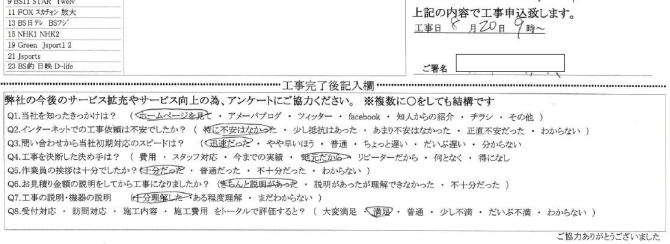 9 BS11 STAR Twelv
11 FOX スカチャン 放大
13 BS日テレ BSフジ
15 NHK1 NHK2
19 Green Jsport1 2
21 Jsports
23 BS釣 日映 D-life
上記の内容で工事申込致します。
工事日 8月20日9時~
ご署名
工事完了後記入欄
弊社の今後のサービス拡充やサービス向上の為、アンケートにご協力ください。 ※複数に〇をしても結構です
Q1.当社を知ったきっかけは? (ホームページを見て ・ アメーバブログ ・ ツィッター ・ facebook ・ 知人からの紹介 ・ チラシ ・ その他 )
Q2.インターネットでの工事依頼は不安でしたか? ( 特に不安はなかった ・ 少し抵抗はあった ・ あまり不安はなかった ・ 正直不安だった ・ わからない )
Q3.問い合わせから当社初期対応のスピードは? ( 迅速だった ・ やや早いほう ・ 普通 ・ ちょっと遅い ・ だいぶ遅い ・ 分からない )
Q4.工事を決断した決め手は? ( 費用 ・ スタッフ対応 ・ 今までの実績 ・ 地元だから ・ リピーターだから ・ 何となく ・ 得になし
Q5.作業員の挨拶は十分でしたか? ( 十分だった ・ 普通だった ・ 不十分だった ・ わからない )
Q6.お見積り金額の説明をしてから工事になりましたか? ( きちんと説明があった ・ 説明があったが理解できなかった ・ 不十分だった )
Q7.工事の説明・機器の説明 ( 十分理解した ・ ある程度理解 ・ まだわからない )
Q8.受付対応 ・ 訪問対応 ・ 施工内容 ・ 施工費用 をトータルで評価すると? ( 大変満足 ・ 満足 ・ 普通 ・ 少し不満 ・ だいぶ不満 ・ わからない )
ご協力ありがとうございました